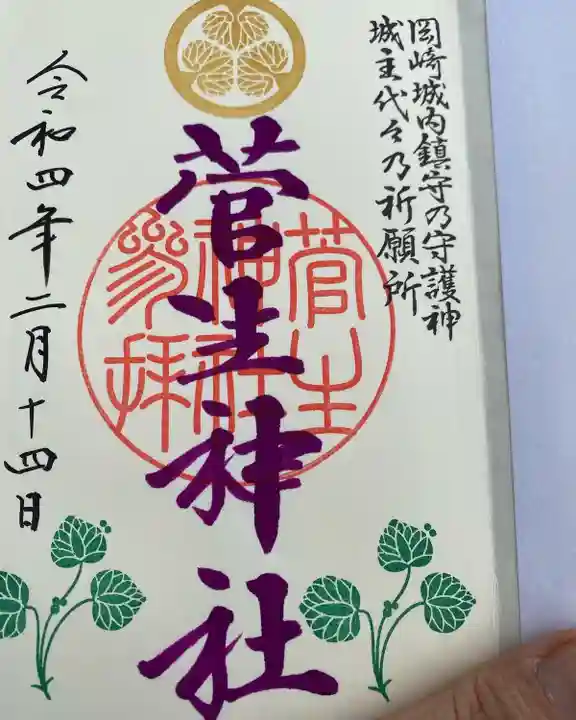 岡崎城内鎮守乃守護神
城主代々乃祈願所
菅生神社
菅生
神社
参拝
令和四年二月十四日